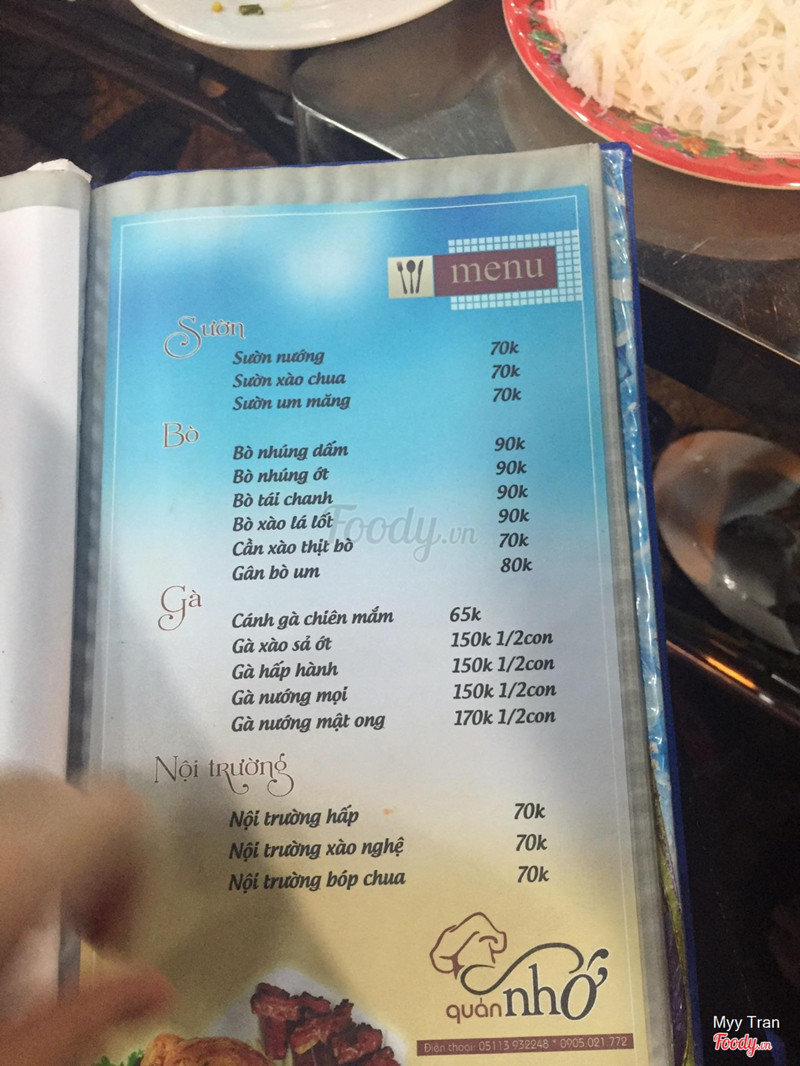 menu
Sườn
Sườn nướng 70k
Sườn xào chua 70k
Sườn um măng 70k
Bò
Bò nhúng dấm 90k
Bò nhúng ớt 90k
Bò tái chanh 90k
Bò xào lá lốt 90k
Cần xào thịt bò 70k
Gân bò um 80k
Foody.vn
Gà
Cánh gà chiên mắm 65k
Gà xào sả ớt 150k 1/2con
Gà hấp hành 150k 1/2con
Gà nướng mọi 150k 1/2con
Gà nướng mật ong 170k 1/2con
Nội trường
Nội trường hấp 70k
Nội trường xào nghệ 70k
Nội trường bóp chua 70k
quán nhớ
Điện thoại: 05113 932248 * 0905 021 772
Myy Tran
Foody.vn